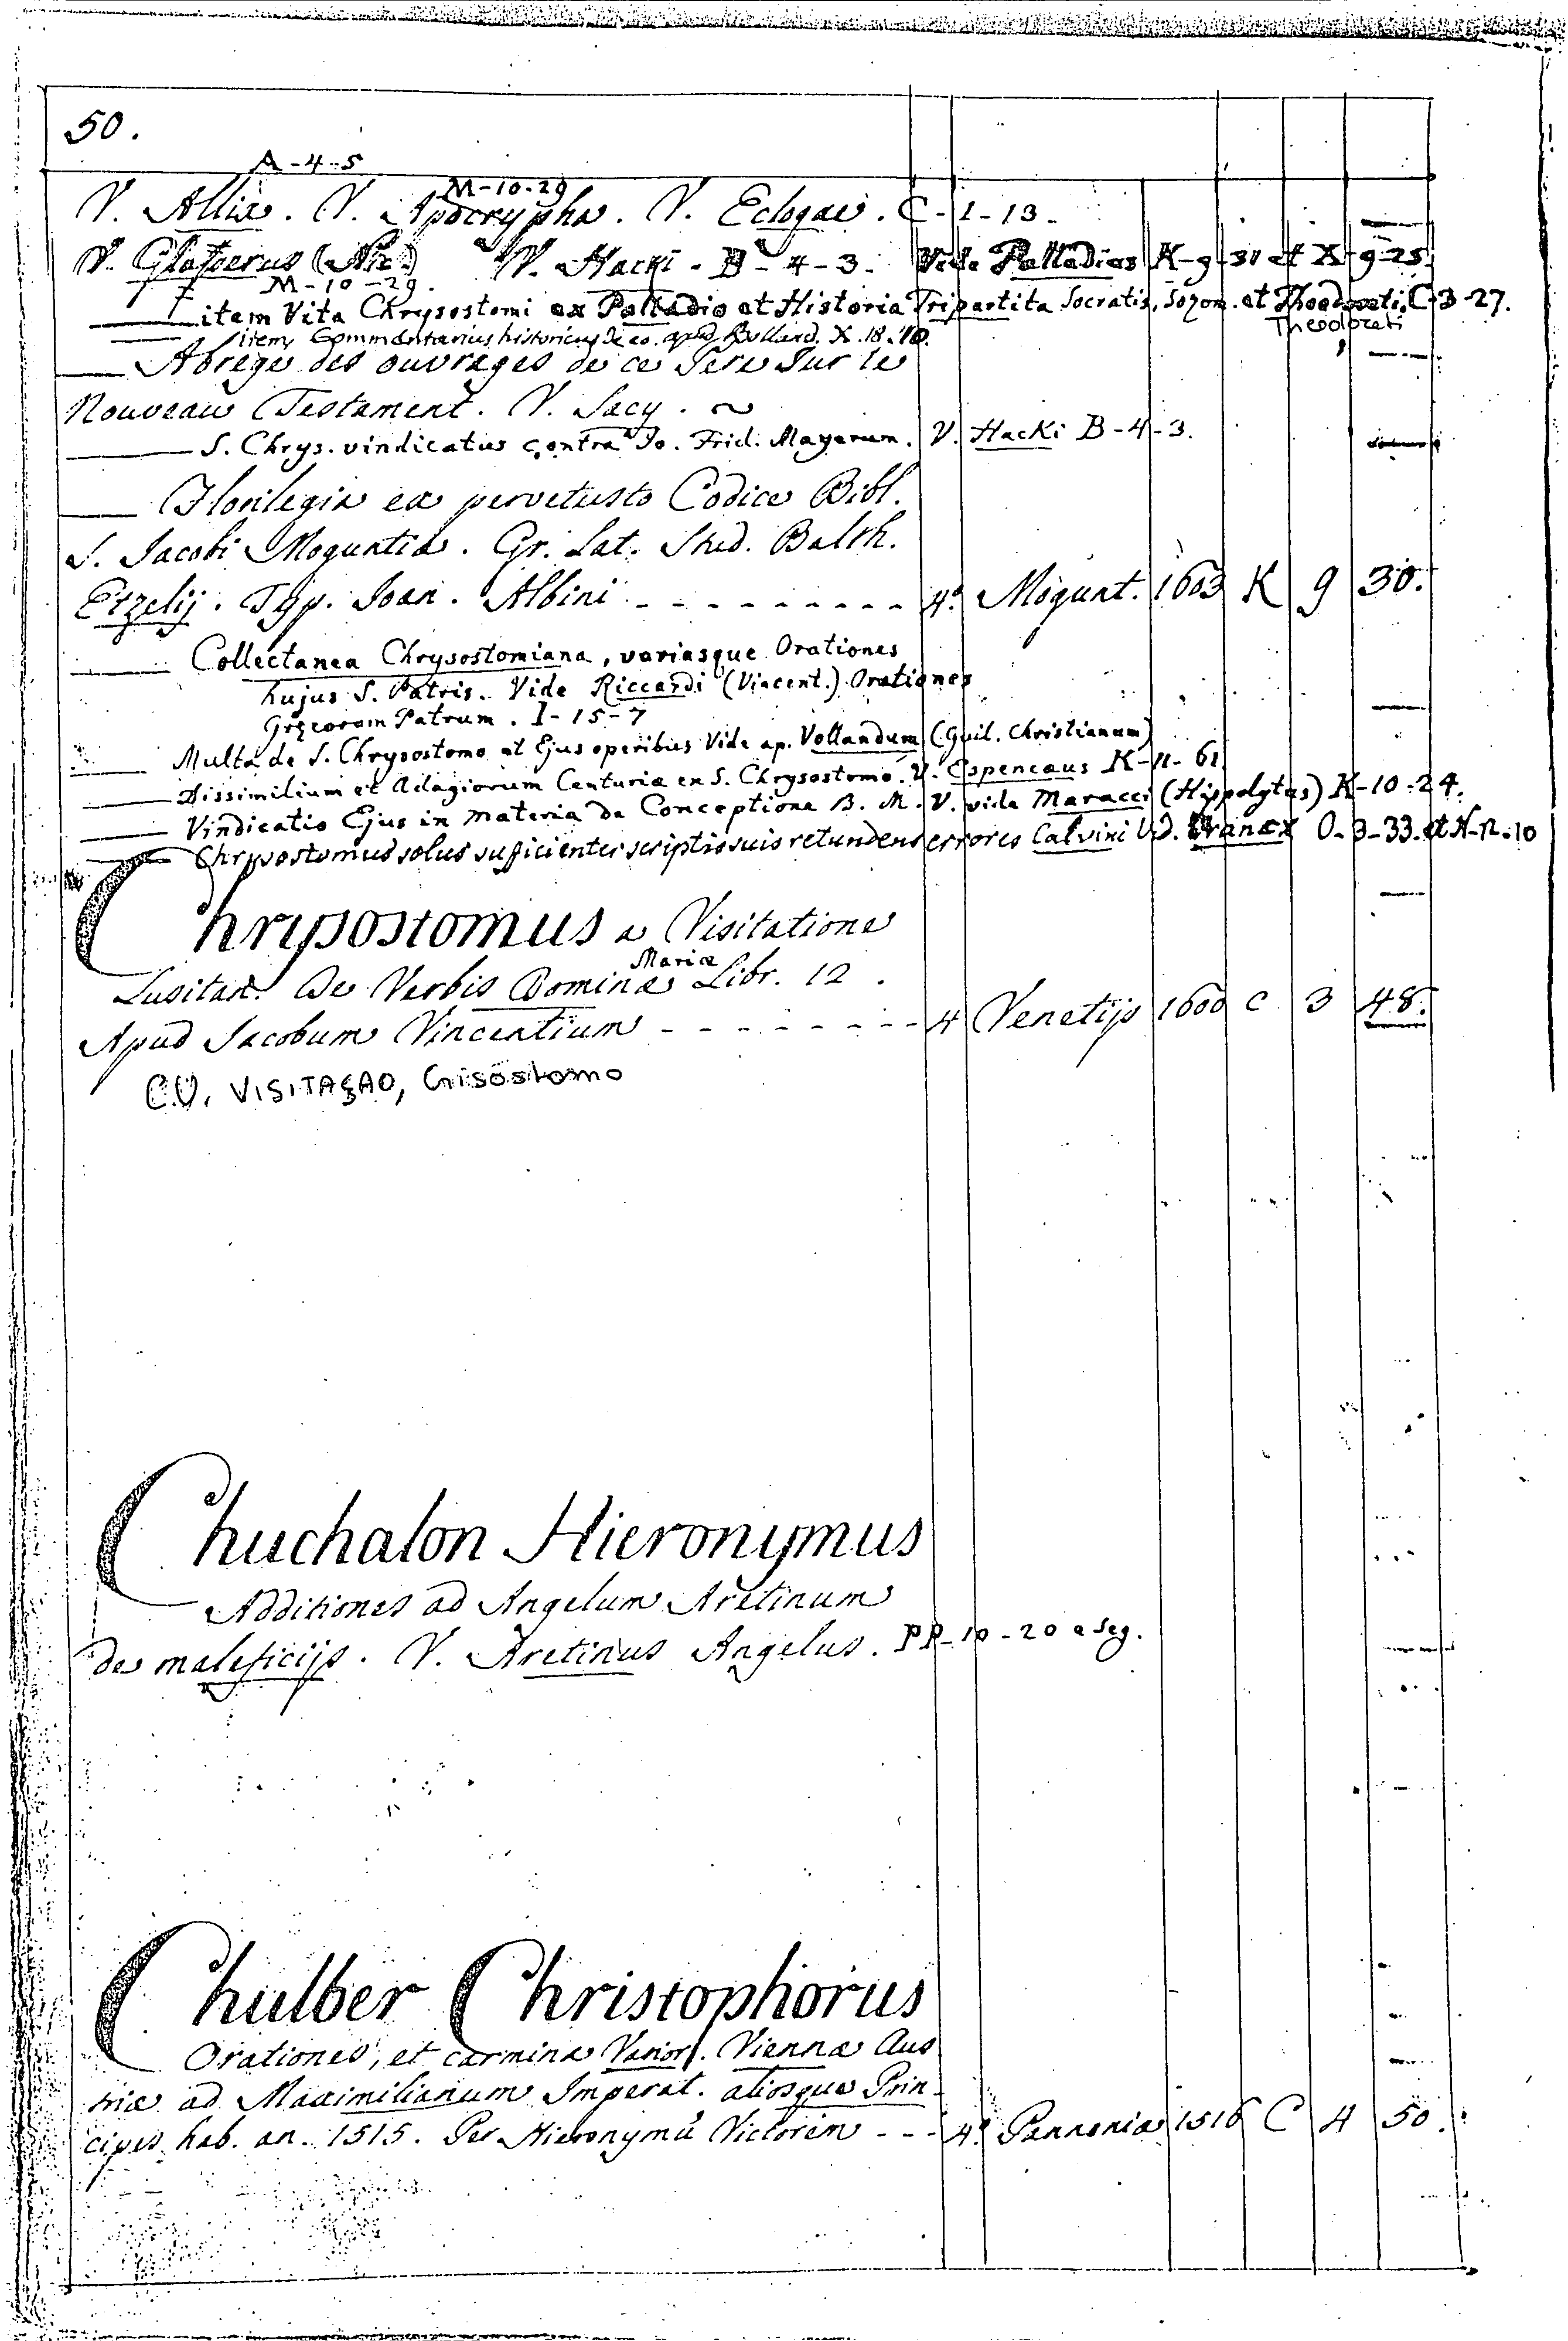 50.
A-4-5
M-10-29
V. Allix. V. Apocrypha. V. Eclogae. C-1-13.
V. Glaserus (Phi:) V. Hacki. B-4-3. Vide Palladius K-9-31 et X-9-25.
M-10-29.
item Vita Chrysostomi ex Palladio et Historia Tripartita Socratis, Sozom. et Theodoreti. C-3-27.
Theodoreti
item Commentarius historicus de eo. apud Bolland. X. 18. 40.
Abrege des ouvrages de ce Pere sur le
Nouveau Testament. V. Sacy. ~
S. Chrys. vindicatus contra Jo. Frid. Mayerum. V. Hacki B-4-3.
Florilegia ex pervetusto Codice Bibl.
S. Jacobi Moguntiæ. Gr. Lat. Stud. Balth.
Etzelij. Typ. Joan. Albini - - - - - - - - - 4º Mogunt. 1603 K 9 30.
Collectanea Chrysostomiana, variasque Orationes
hujus S. Patris. Vide Riccardi (Vincent.) Orationes
Græcorum Patrum. I-15-7
Multa de S. Chrysostomo et Ejus operibus Vide ap. Vollandum (Guil. Christianum)
Dissimilium et Adagiorum Centuria ex S. Chrysostomo. V. Espencæus K-11-61
Vindicatio Ejus in materia de Conceptione B. M. V. vide Maracci (Hippolytus) K-10-24.
Chrysostomus solus sufficienter scriptis suis retundens errores Calvini Vid. O-3-33. et N-12-10
Chrysostomus a Visitatione
Mariæ
Lusitan. De Verbis Dominæ Libr. 12.
Apud Jacobum Vincentium - - - - - - - - 4 Venetijs 1600 C 3 48.
C.V. VISITAÇAO, Crisóstomo
Chuchalon Hieronymus
Additiones ad Angelum Aretinum
de maleficijs. V. Aretinus Angelus. PP-10-20 e seg.
Chulber Christophorus
Orationes, et carmina Varior. Viennæ Aus
triæ ad Maximilianum Imperat. aliosque Prin-
cipes hab. an. 1515. Per Hieronymũ Victorem - - - 4º Pannonia 1516 C 4 50.